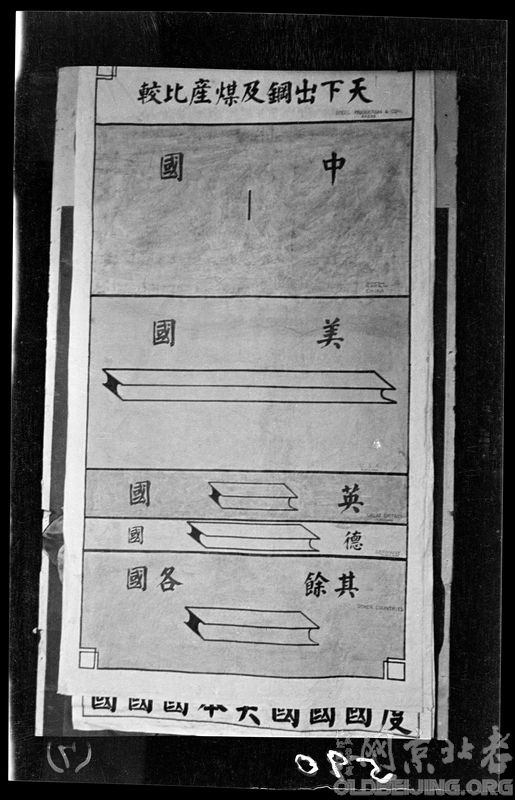 天下出鋼及煤產比較
STEEL PRODUCTION & COAL
AREAS
中國
CHINA
美國
英國
GREAT BRITAIN
德國
GERMANY
其餘各國
OTHER COUNTRIES
度國國國大本國國國
老北京网
OLDBEIJING.ORG
(7)
590